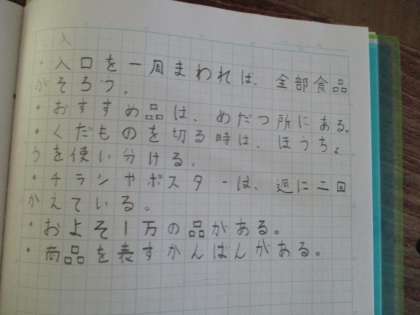 ・入口を一周まわれば、全部食品
がそろう。
・おすすめ品は、めだつ所にある。
・くだものを切る時は、ほうちょ
うを使い分ける。
・チラシやポスターは、週に二回
かえている。
・およそ1万の品がある。
・商品を表すかんばんがある。